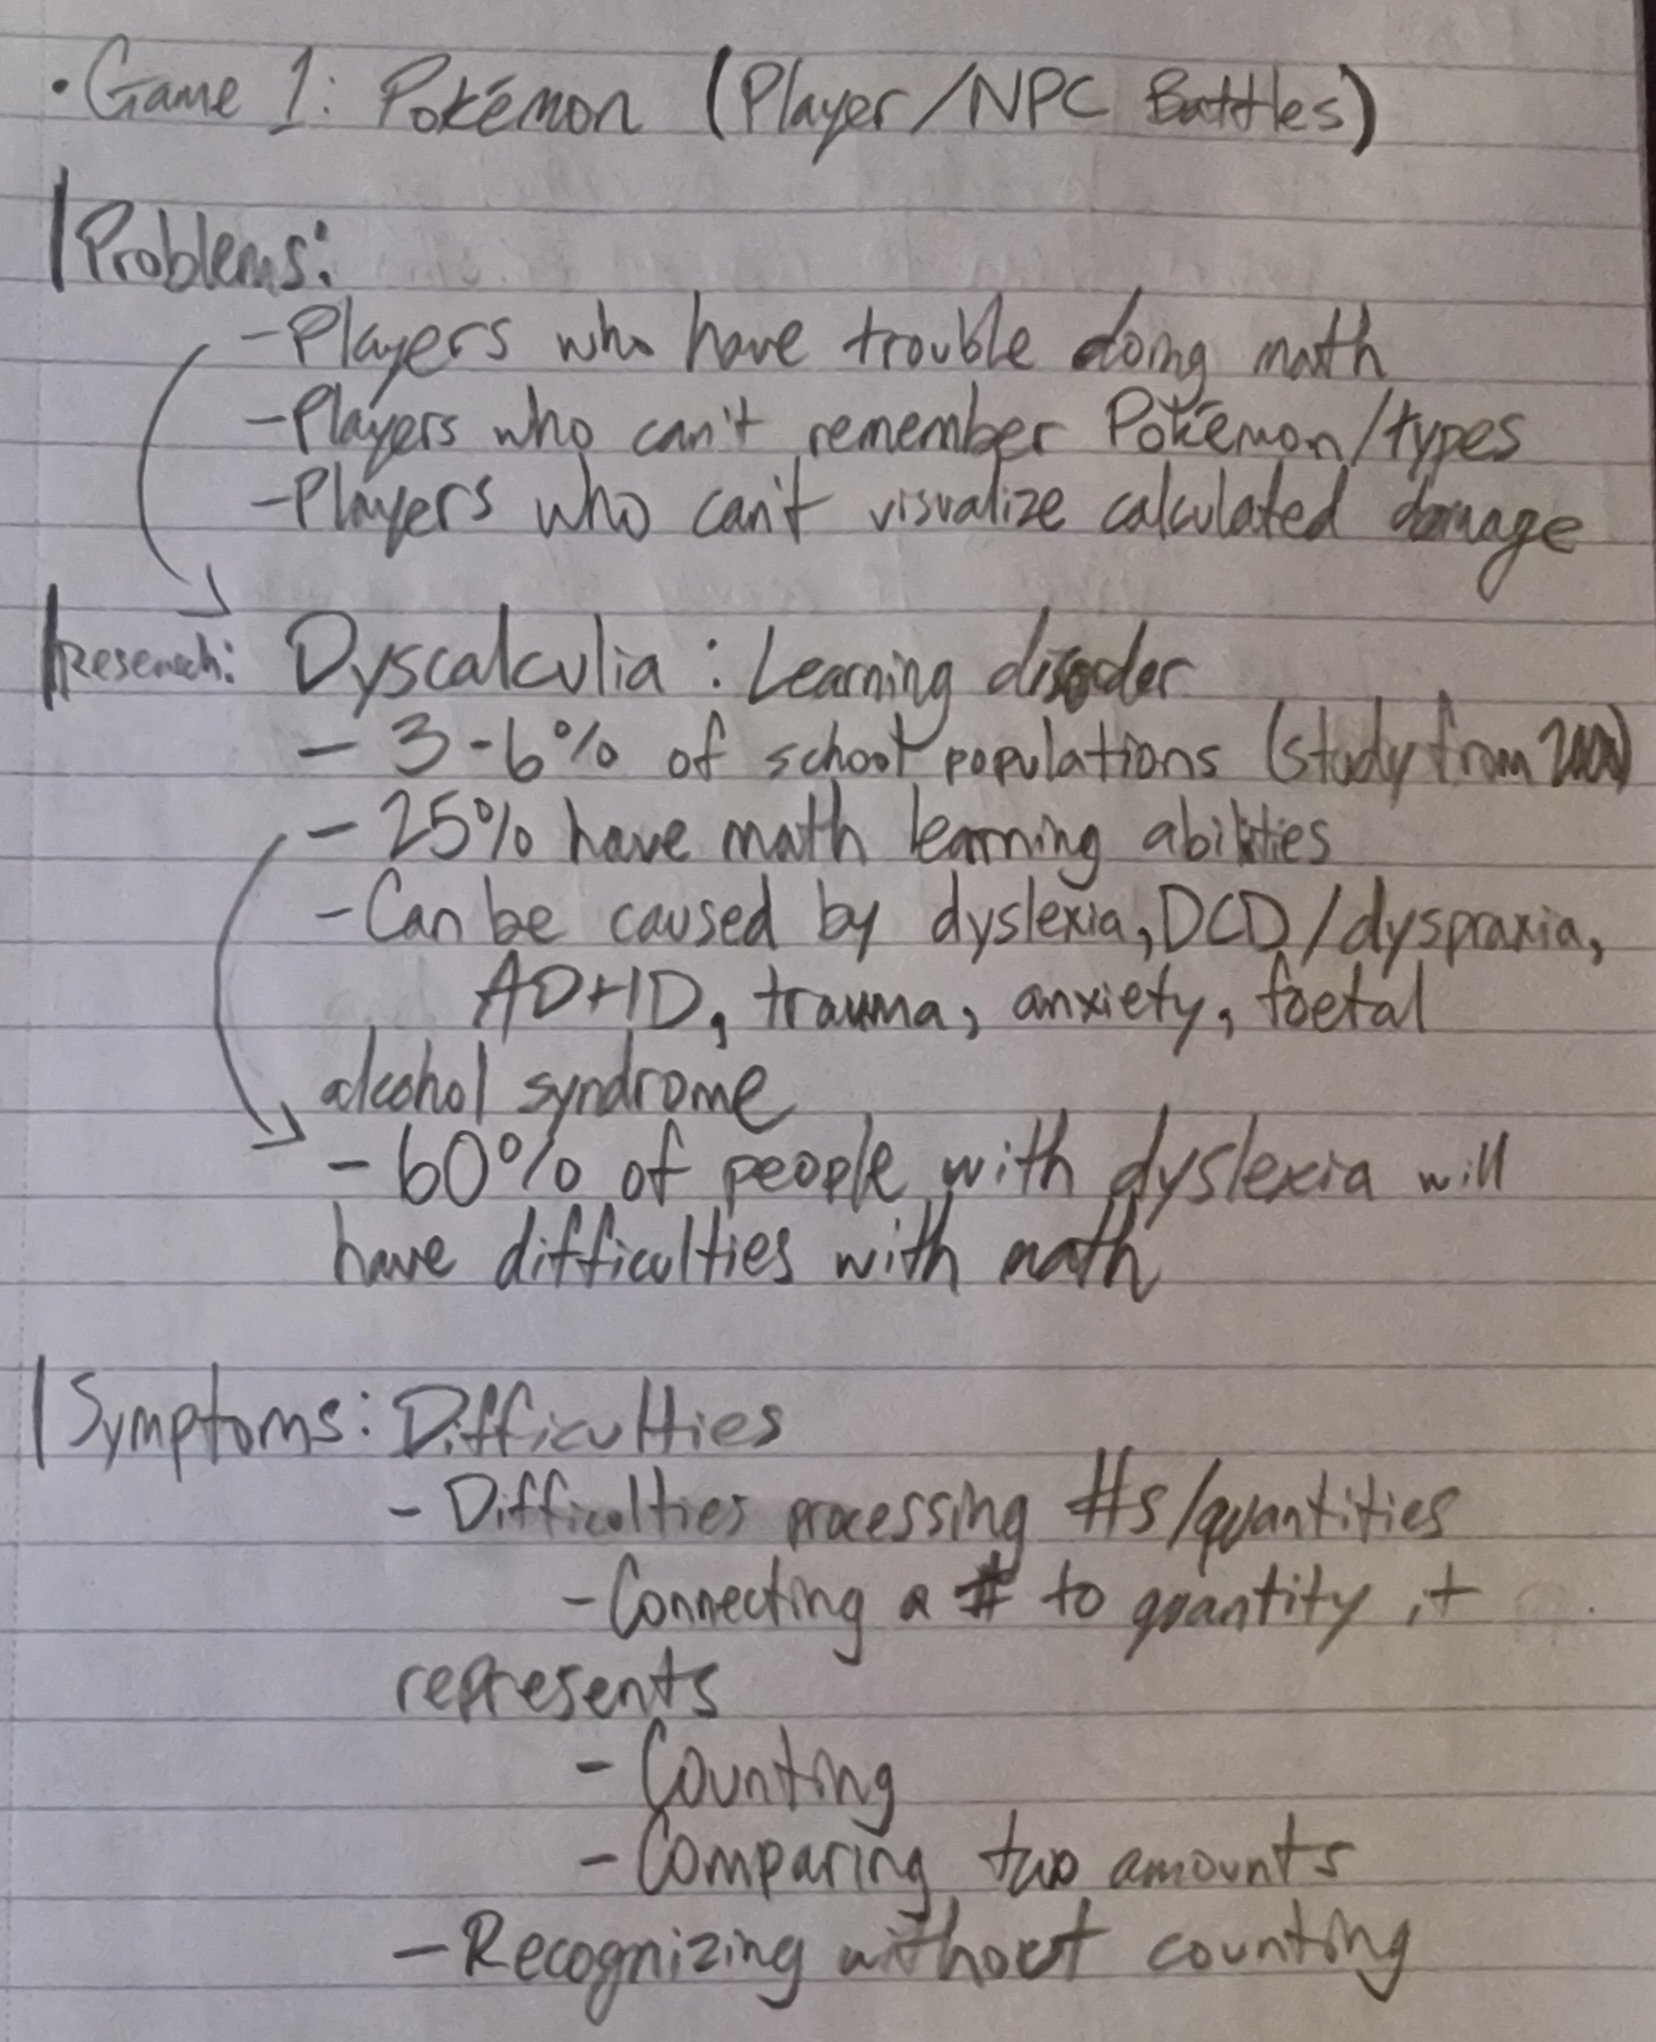 • Game 1: Pokémon (Player/NPC Battles)
Problems:
- Players who have trouble doing math
- Players who can't remember Pokémon/types
- Players who can't visualize calculated damage
Research: Dyscalculia: Learning disorder
- 3-6% of school populations (study from
- 25% have math learning abilities
- Can be caused by dyslexia, DCD/dyspraxia,
ADHD, trauma, anxiety, foetal
alcohol syndrome
- 60% of people with dyslexia will
have difficulties with math
Symptoms: Difficulties
- Difficulties processing #s/quantities
- Connecting a # to quantity it
represents
- Counting
- Comparing two amounts
- Recognizing without counting